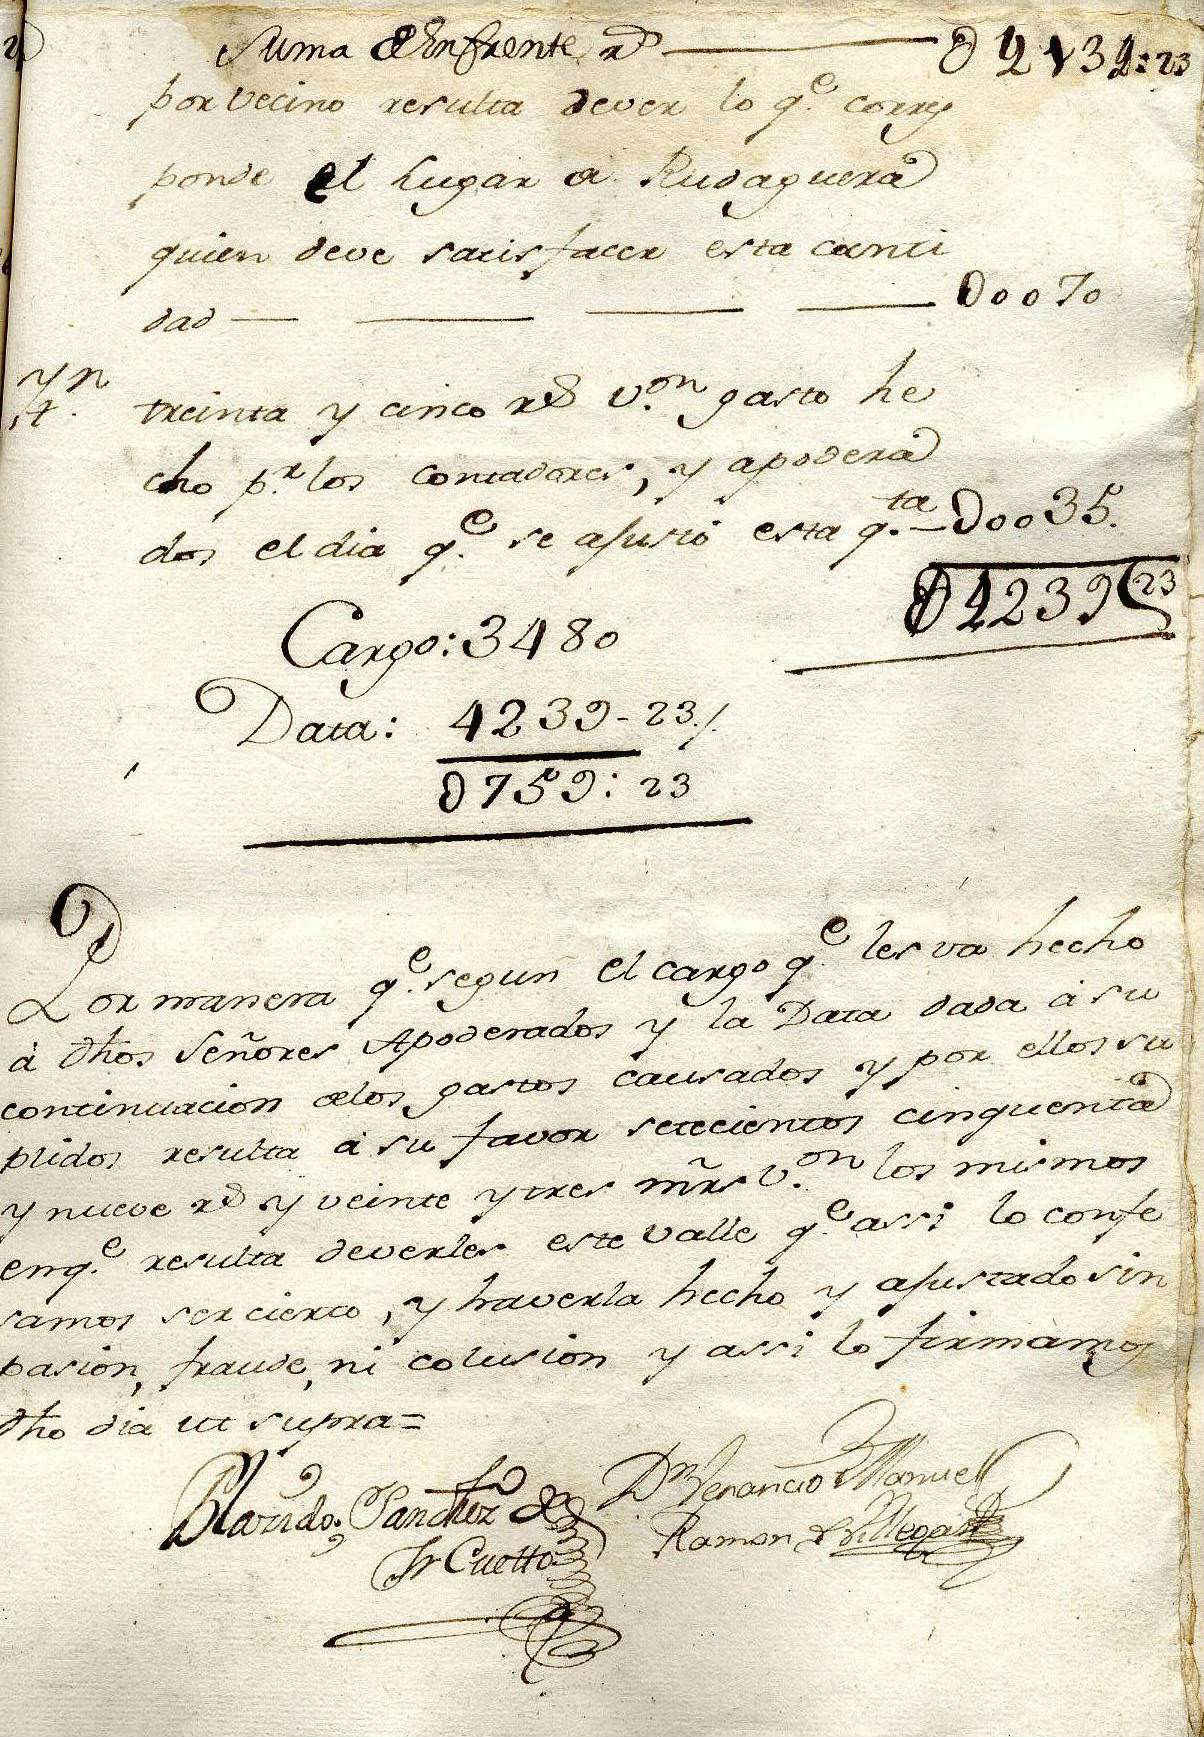 Suma de Enfrente rs — 0 4134: 23
por vecino resulta dever lo q.e corres
ponde el Lugar de Rudaguera
quien deve satisfacer esta canti
dad — — — — 0 0 0 7 0
Yn
t.
treinta y cinco rs v.on gasto he
cho p.r los contadores, y apodera
dos el dia q.e se ajustó esta q.ta — 0 0 0 3 5.
0 4 2 3 9 (23
Cargo: 3480
Data: 4239 - 23./.
0759: 23
Por manera q.e segun el cargo q.e les va hecho
á dhos Señores Apoderados y la Data dada á su
continuacion de los gastos causados y por ellos su
plidos resulta á su favor setecientos cinquenta
y nueve rs y veinte y tres mrs v.on los mismos
en q.e resulta deverles este Valle q.e assi lo confe
samos ser cierto, y haverla hecho y ajustado sin
pasion, fraude, ni colusion y assi lo firmamos
dho dia ut supra =
Sanchez de
Cuetto
Dn Venancio Manuel
Ramon de Villegas